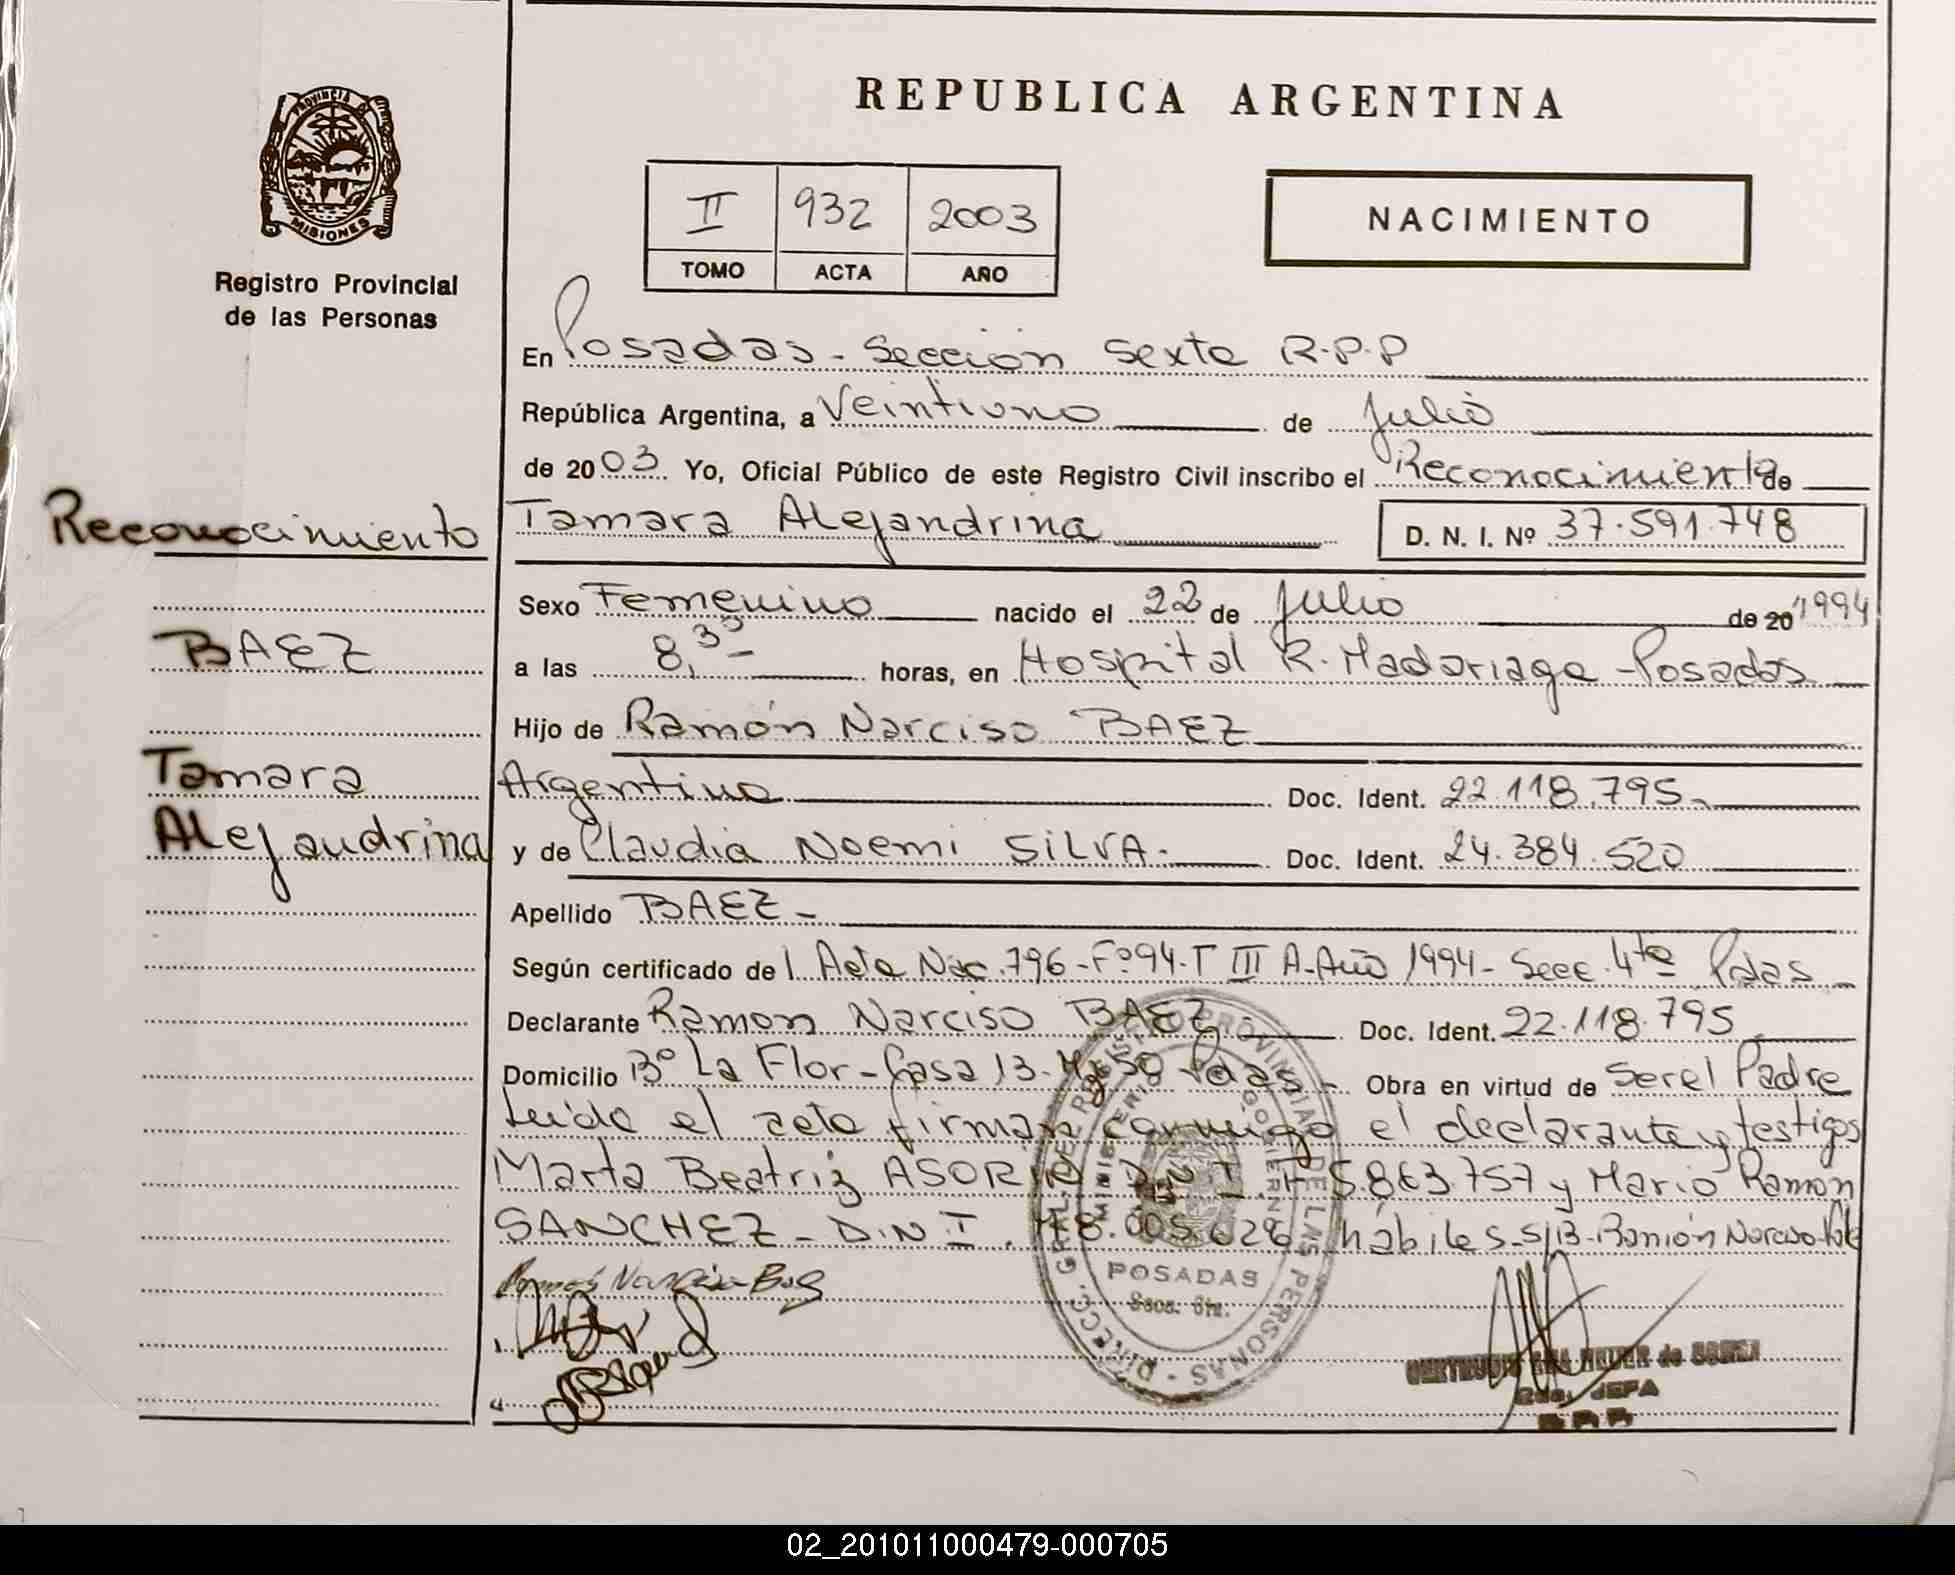 REPUBLICA ARGENTINA
PROVINCIA DE
MISIONES
Registro Provincial
de las Personas
II 932 2003
TOMO ACTA AÑO
NACIMIENTO
En Posadas - Sección Sexta R.P.P
República Argentina, a Veintiuno de Julio
de 2003. Yo, Oficial Público de este Registro Civil inscribo el Reconocimiento de
Reconocimiento
Tamara Alejandrina D. N. I. Nº 37.591.748
Sexo Femenino nacido el 22 de Julio de 20 1994
BAEZ
a las 8,30- horas, en Hospital R. Madariaga - Posadas
Hijo de Ramón Narciso BAEZ
Tamara
Argentino Doc. Ident. 22.118.795-
Alejandrina
y de Claudia Noemi SILVA- Doc. Ident. 24.384.520
Apellido BAEZ -
Según certificado de l Acta Nac. 796-Fº94-T III A-Año 1994- Secc. 4ta Pdas
Declarante Ramon Narciso BAEZ Doc. Ident. 22.118.795
Domicilio Bº La Flor - Casa 13- Mz 50 Pdas- Obra en virtud de Ser el Padre
Leida el acta firman conmigo el declarante y testigos
Marta Beatriz D.N.I. F 5.863.757 y Mario Ramon
SANCHEZ - D.N.I. M8.005.028 hábiles-S/B-Ramón Narciso
Ramón Narciso Baez
DIRECC. GRAL. DEL REGISTRO PROVINCIAL DE LAS PERSONAS
MINISTERIO GOBIERNO
POSADAS
Secc. 6ta.
de SOUZA
JEFA
02_201011000479-000705